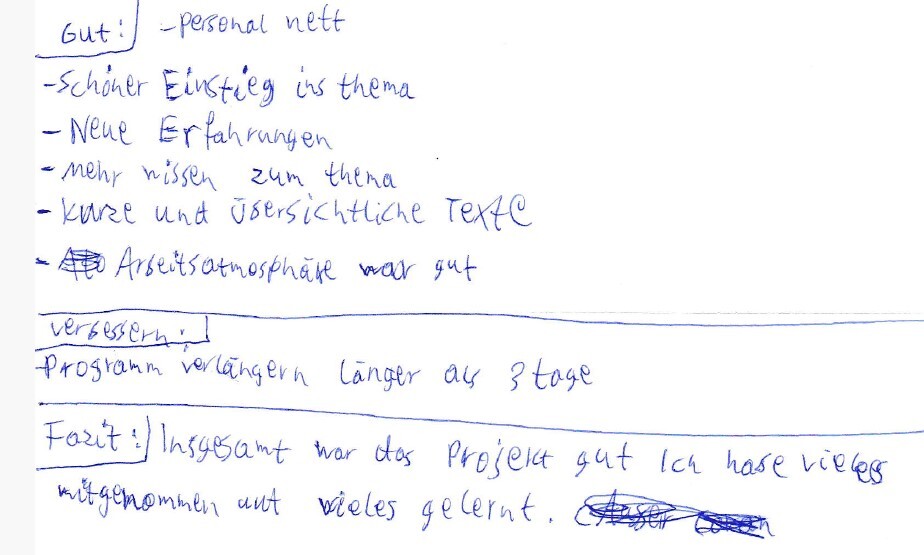 Gut: -personal nett
-Schöner Einstieg ins thema
- Neue Erfahrungen
- mehr wissen zum thema
- kurze und übersichtliche Texte
- Arbeitsatmosphäre war gut
verbessern:
-Programm verlängern länger als 3 tage
Fazit: Insgesamt war das Projekt gut Ich habe vieles
mitgenommen unt vieles gelernt.